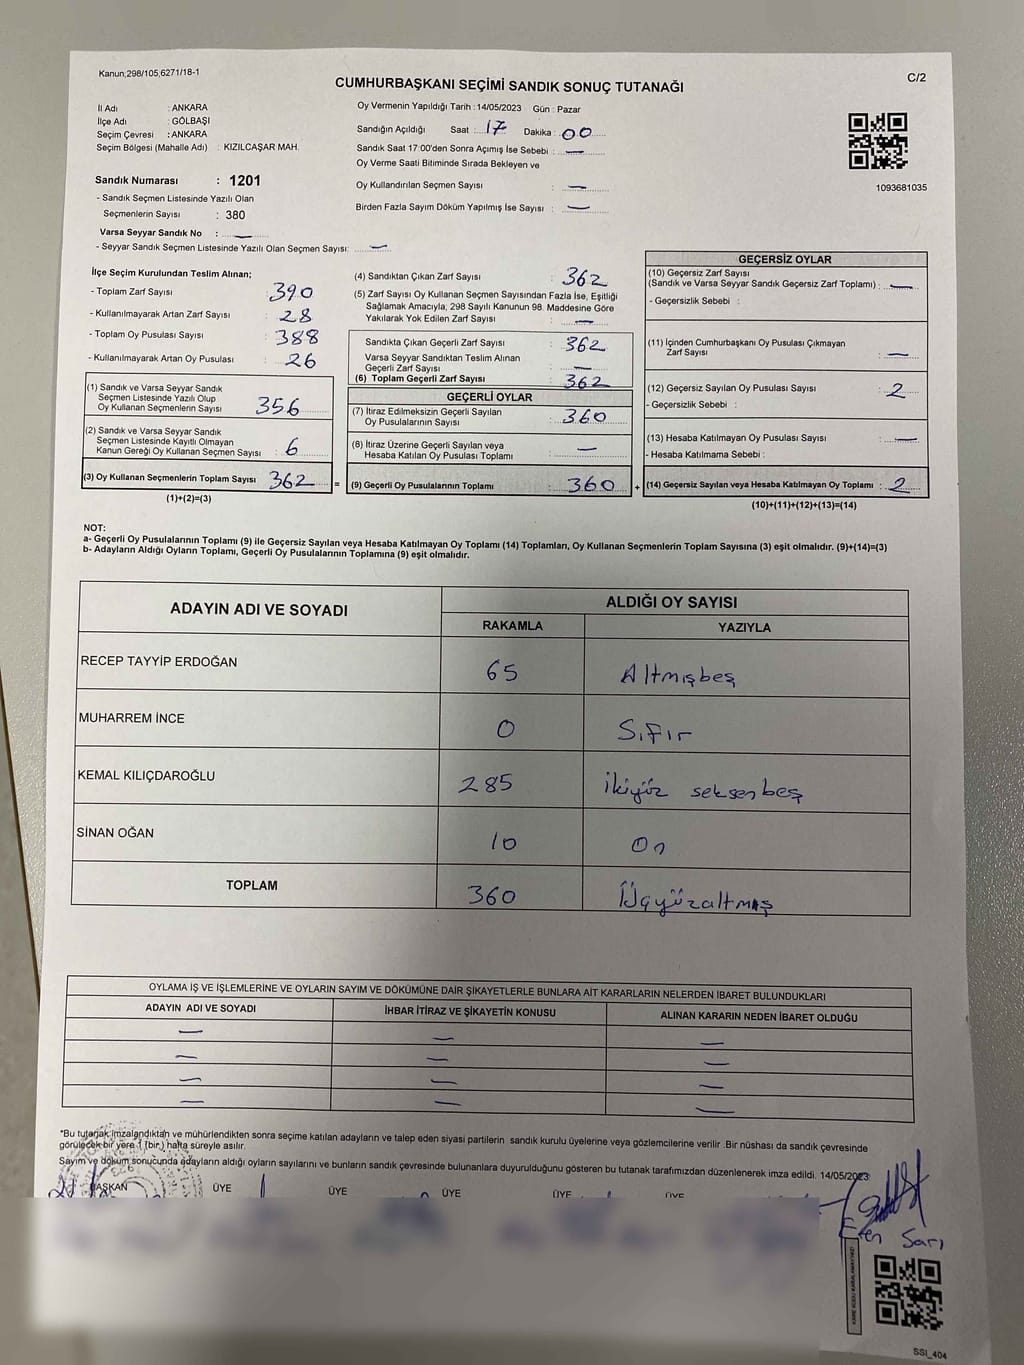 Kanun,298/105,6271/18-1
C/2
CUMHURBAŞKANI SEÇİMİ SANDIK SONUÇ TUTANAĞI
İl Adı : ANKARA
İlçe Adı : GÖLBAŞI
Seçim Çevresi : ANKARA
Seçim Bölgesi (Mahalle Adı) : KIZILCAŞAR MAH.
Sandık Numarası : 1201
- Sandık Seçmen Listesinde Yazılı Olan
Seçmenlerin Sayısı : 380
Varsa Seyyar Sandık No : —
- Seyyar Sandık Seçmen Listesinde Yazılı Olan Seçmen Sayısı: —
Oy Vermenin Yapıldığı Tarih : 14/05/2023 Gün : Pazar
Sandığın Açıldığı Saat : 17 Dakika : 00
Sandık Saat 17:00'den Sonra Açımış İse Sebebi : —
Oy Verme Saati Bitiminde Sırada Bekleyen ve
Oy Kullandırılan Seçmen Sayısı : —
Birden Fazla Sayım Döküm Yapılmış İse Sayısı : —
1093681035
İlçe Seçim Kurulundan Teslim Alınan;
- Toplam Zarf Sayısı : 390
- Kullanılmayarak Artan Zarf Sayısı : 28
- Toplam Oy Pusulası Sayısı : 388
- Kullanılmayarak Artan Oy Pusulası : 26
(1) Sandık ve Varsa Seyyar Sandık
Seçmen Listesinde Yazılı Olup
Oy Kullanan Seçmenlerin Sayısı : 356
(2) Sandık ve Varsa Seyyar Sandık
Seçmen Listesinde Kayıtlı Olmayan
Kanun Gereği Oy Kullanan Seçmen Sayısı : 6
(3) Oy Kullanan Seçmenlerin Toplam Sayısı 362
(1)+(2)=(3)
=
(4) Sandıktan Çıkan Zarf Sayısı : 362
(5) Zarf Sayısı Oy Kullanan Seçmen Sayısından Fazla İse, Eşitliği
Sağlamak Amacıyla; 298 Sayılı Kanunun 98. Maddesine Göre
Yakılarak Yok Edilen Zarf Sayısı : —
Sandıkta Çıkan Geçerli Zarf Sayısı : 362
Varsa Seyyar Sandıktan Teslim Alınan
Geçerli Zarf Sayısı : —
(6) Toplam Geçerli Zarf Sayısı : 362
GEÇERLİ OYLAR
(7) İtiraz Edilmeksizin Geçerli Sayılan
Oy Pusulalarının Sayısı : 360
(8) İtiraz Üzerine Geçerli Sayılan veya
Hesaba Katılan Oy Pusulaları Toplamı : —
(9) Geçerli Oy Pusulalarının Toplamı : 360
+
GEÇERSİZ OYLAR
(10) Geçersiz Zarf Sayısı
(Sandık ve Varsa Seyyar Sandık Geçersiz Zarf Toplamı) : —
- Geçersizlik Sebebi :
(11) İçinden Cumhurbaşkanı Oy Pusulası Çıkmayan
Zarf Sayısı : —
(12) Geçersiz Sayılan Oy Pusulası Sayısı : 2
- Geçersizlik Sebebi :
(13) Hesaba Katılmayan Oy Pusulası Sayısı : —
- Hesaba Katılmama Sebebi :
(14) Geçersiz Sayılan veya Hesaba Katılmayan Oy Toplamı : 2
(10)+(11)+(12)+(13)=(14)
NOT:
a- Geçerli Oy Pusulalarının Toplamı (9) ile Geçersiz Sayılan veya Hesaba Katılmayan Oy Toplamı (14) Toplamları, Oy Kullanan Seçmenlerin Toplam Sayısına (3) eşit olmalıdır. (9)+(14)=(3)
b- Adayların Aldığı Oyların Toplamı, Geçerli Oy Pusulalarının Toplamına (9) eşit olmalıdır.
ADAYIN ADI VE SOYADI ALDIĞI OY SAYISI
RAKAMLA YAZIYLA
RECEP TAYYİP ERDOĞAN 65 Altmışbeş
MUHARREM İNCE 0 Sıfır
KEMAL KILIÇDAROĞLU 285 ikiyüz seksenbeş
SİNAN OĞAN 10 On
TOPLAM 360 Üçyüzaltmış
OYLAMA İŞ VE İŞLEMLERİNE VE OYLARIN SAYIM VE DÖKÜMÜNE DAİR ŞİKAYETLERLE BUNLARA AİT KARARLARIN NELERDEN İBARET BULUNDUKLARI
ADAYIN ADI VE SOYADI İHBAR İTİRAZ VE ŞİKAYETİN KONUSU ALINAN KARARIN NEDEN İBARET OLDUĞU
— — —
— — —
— — —
— — —
*Bu tutanak imzalandıktan ve mühürlendikten sonra seçime katılan adayların ve talep eden siyasi partilerin sandık kurulu üyelerine veya gözlemcilerine verilir .Bir nüshası da sandık çevresinde
görülecek bir yere 1 (bir) hafta süreyle asılır.
Sayım ve döküm sonucunda adayların aldığı oyların sayılarını ve bunların sandık çevresinde bulunanlara duyurulduğunu gösteren bu tutanak tarafımızdan düzenlenerek imza edildi. 14/05/2023
BAŞKAN ÜYE ÜYE ÜYE ÜYE ÜYE
Eren Sarı
SSI_404